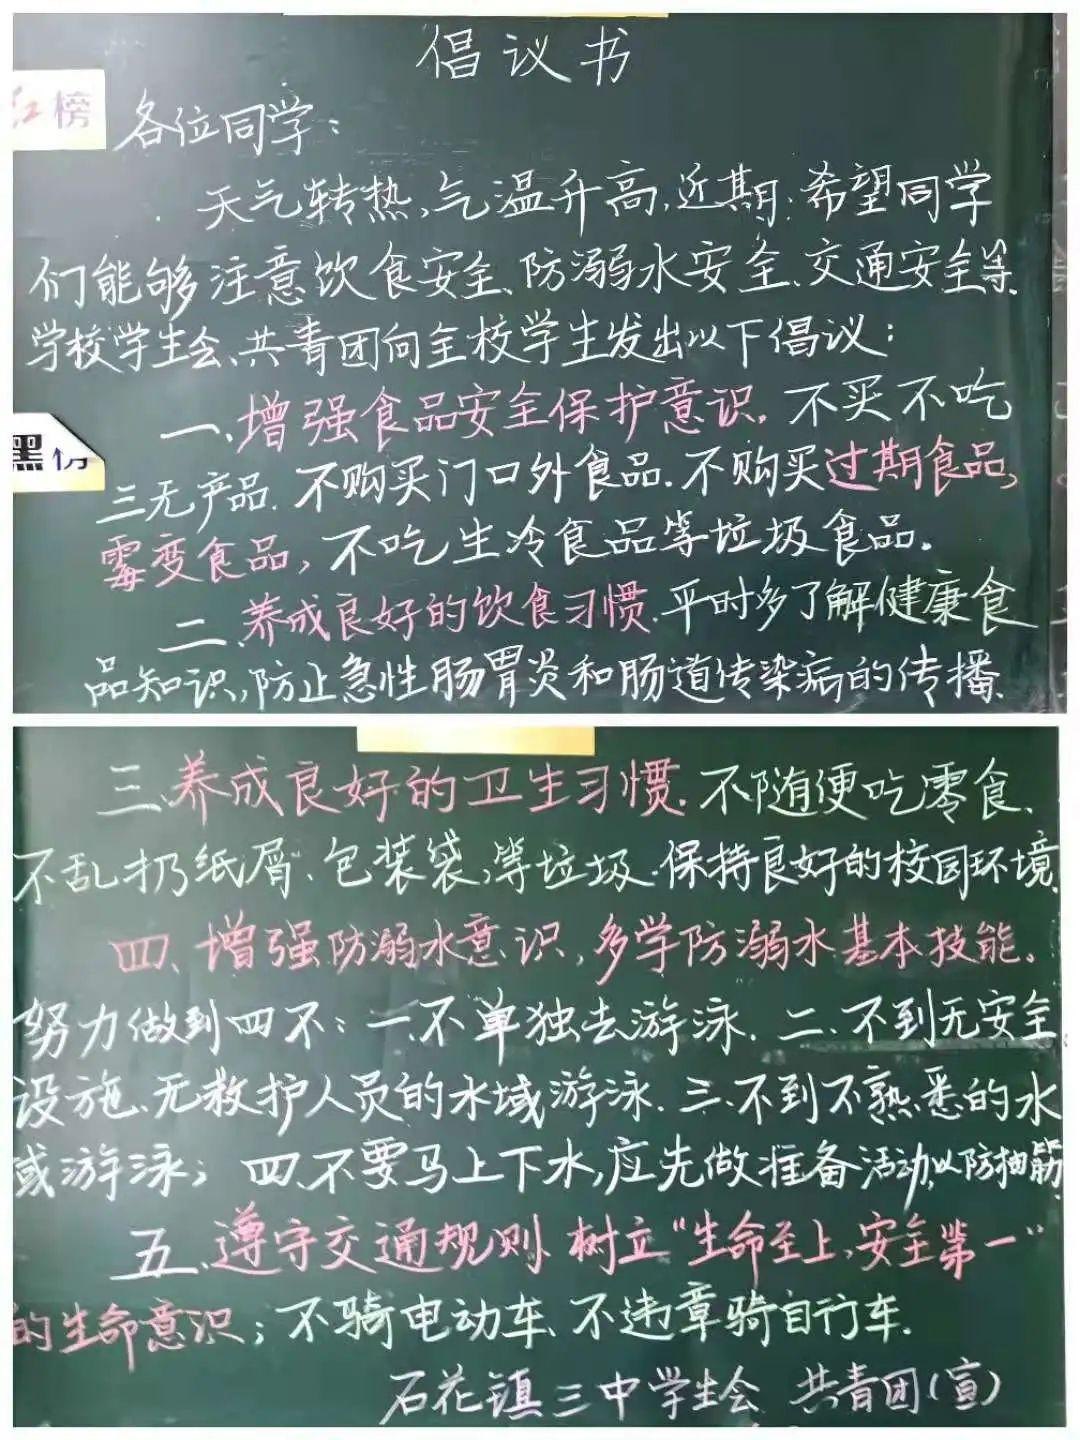 倡议书
红榜
各位同学：
天气转热，气温升高，近期，希望同学
们能够注意饮食安全、防溺水安全、交通安全等.
学校学生会、共青团向全校学生发出以下倡议：
一、增强食品安全保护意识，不买不吃
黑榜
三无产品.不购买门口外食品.不购买过期食品，
霉变食品，不吃生冷食品等垃圾食品。
二、养成良好的饮食习惯.平时多了解健康食
品知识，防止急性肠胃炎和肠道传染病的传播.
三、养成良好的卫生习惯.不随便吃零食.
不乱扔纸屑、包装袋，等垃圾.保持良好的校园环境.
四、增强防溺水意识，多学防溺水基本技能。
努力做到四不：一.不单独去游泳.二、不到无安全
设施、无救护人员的水域游泳.三、不到不熟悉的水
域游泳；四、不要马上下水，应先做准备活动，以防抽筋.
五、遵守交通规则、树立“生命至上，安全第一”
的生命意识；不骑电动车、不违章骑自行车.
石花镇三中学生会 共青团（宣）